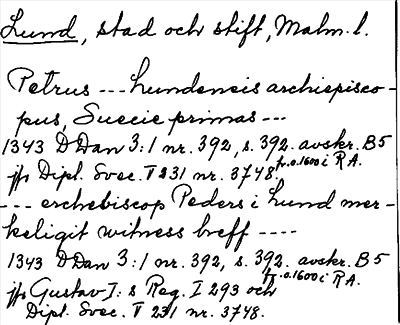 Lund, stad och stift, Malm. l.
Petrus --- Lundensis archiepisco-
pus, Suecie primas ---
1343 DDan 3:1 nr. 392, s. 392. avskr. B5
fr. o. 1600 i RA.
jfr Dipl. Svec. V 231 nr. 3748.
--- erchebiscop Peders i Lund mer-
keligit witness breff ----
1343 DDan 3:1 nr. 392, s. 392. avskr. B5
fr. o. 1600 i RA.
jfr Gustav I:s Reg. I 293 och
Dipl. Svec. V 231 nr. 3748.